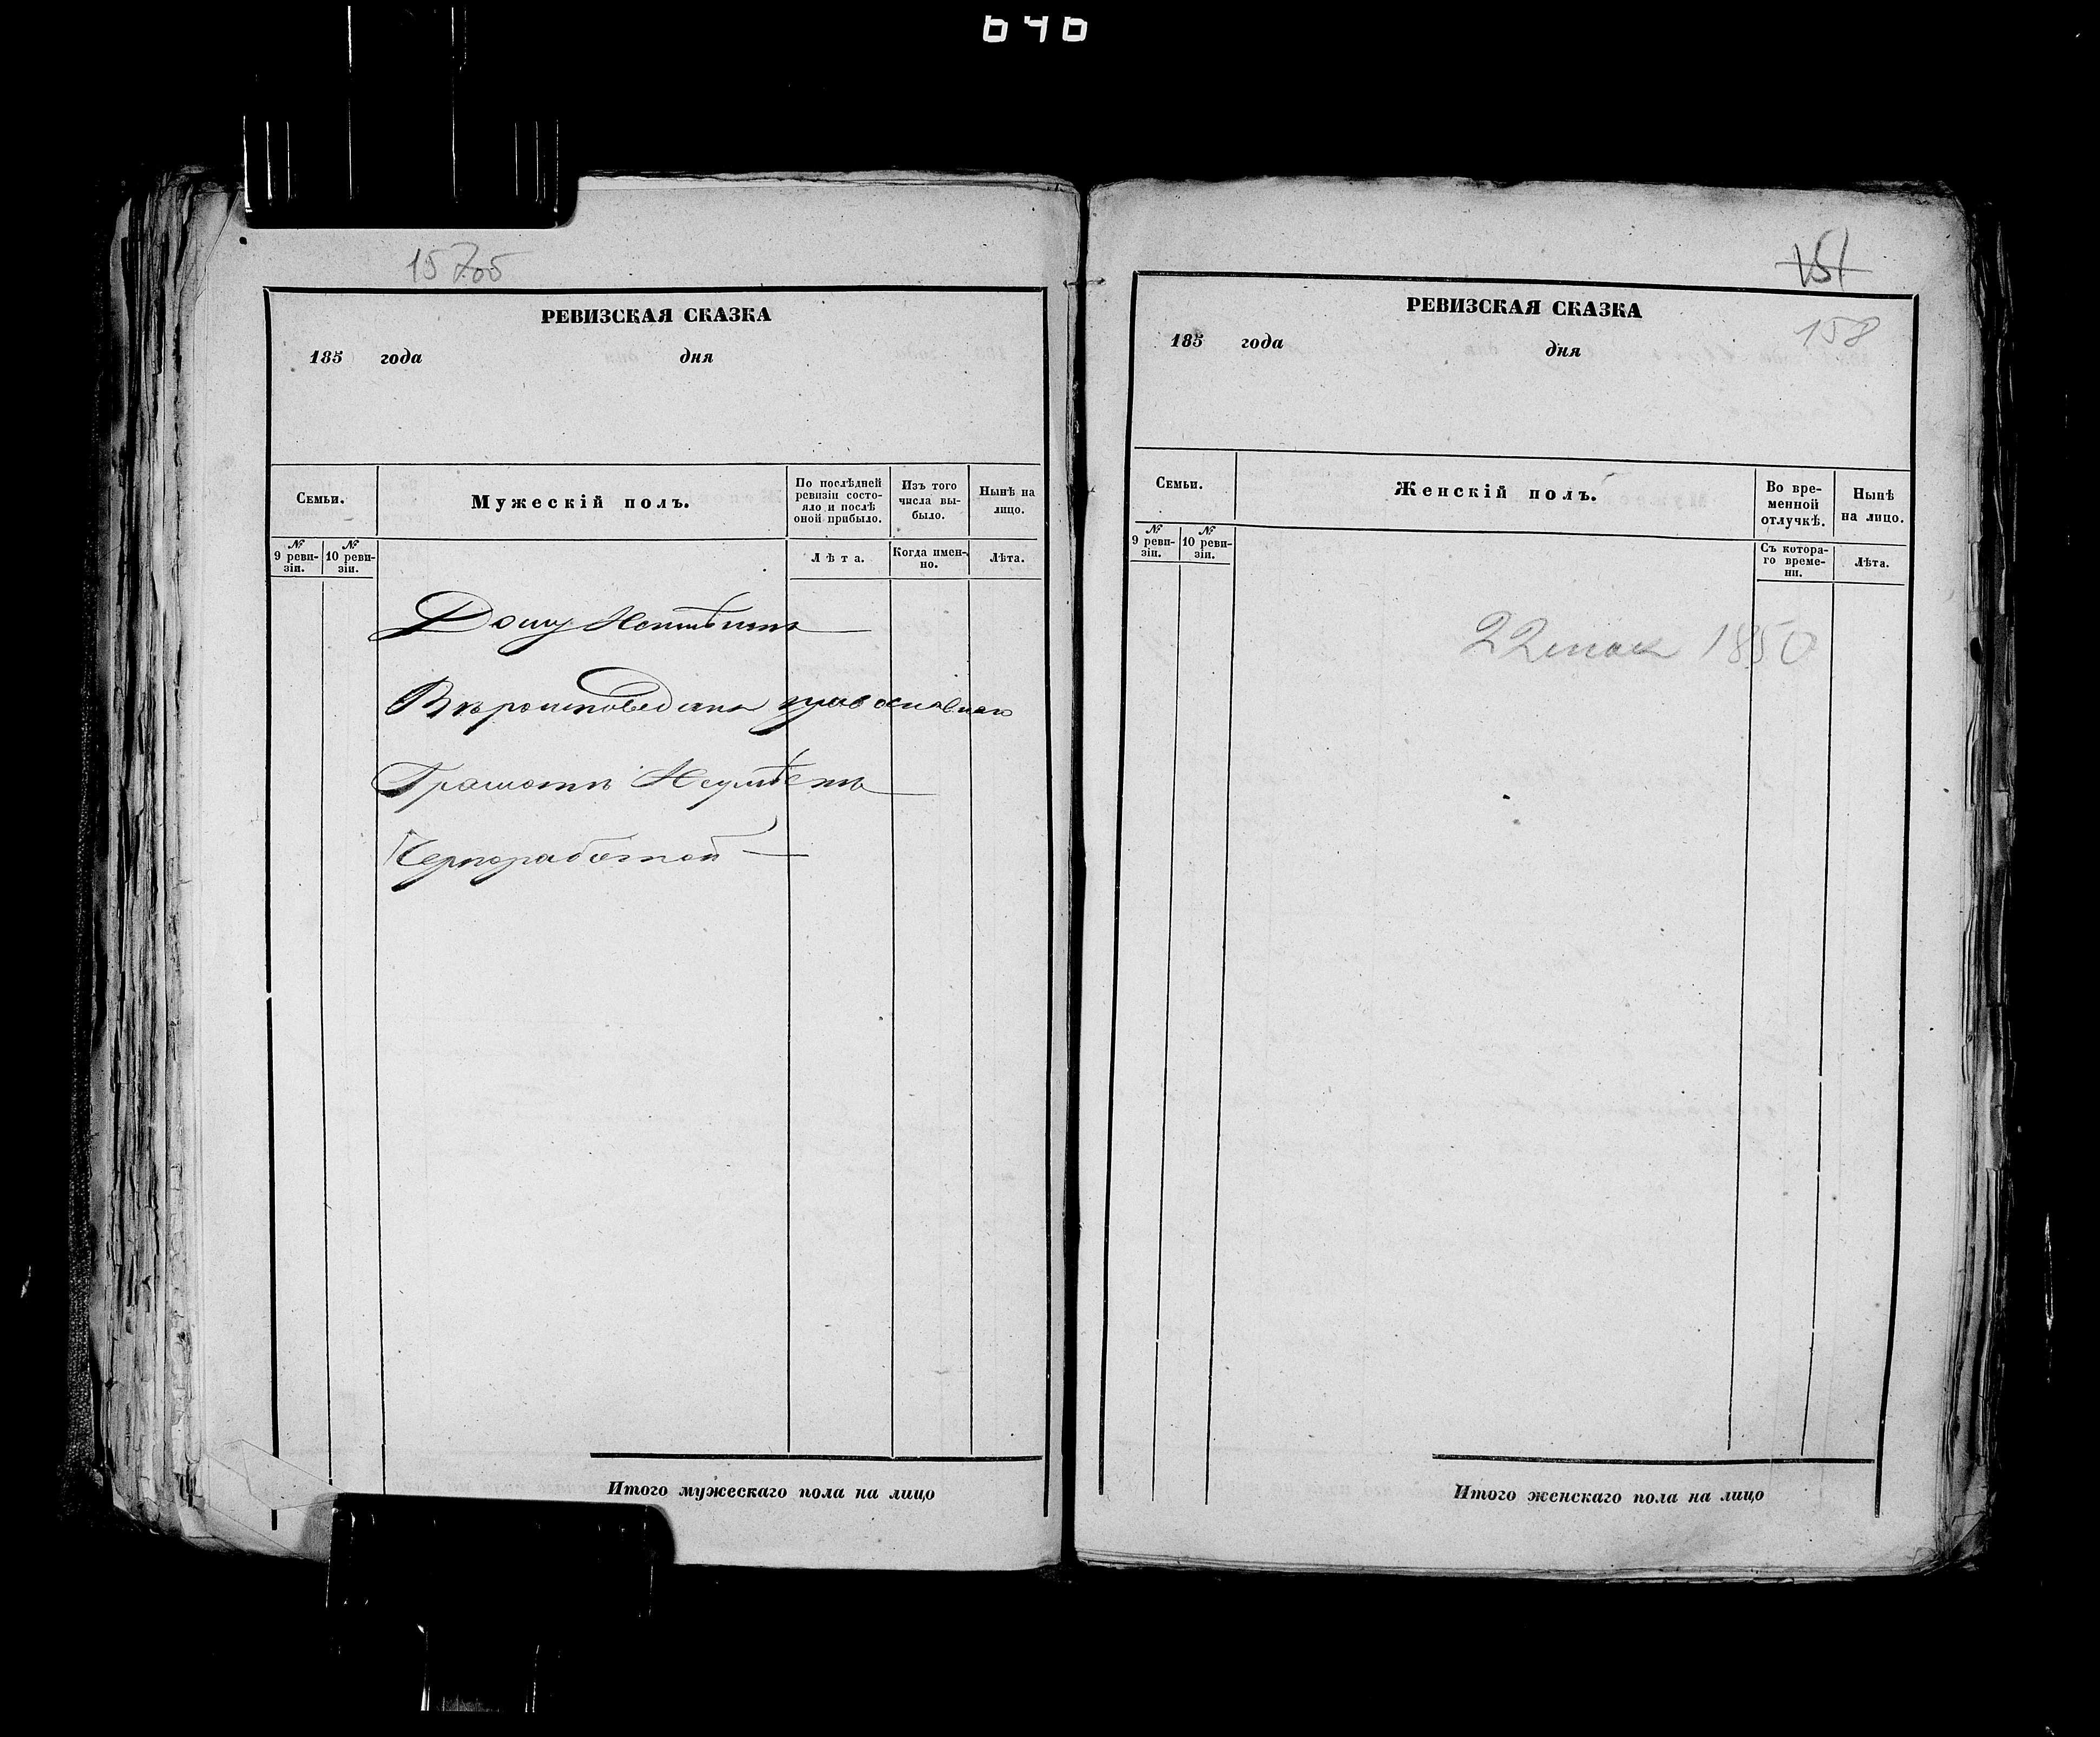 646
15705
РЕВИЗСКАЯ СКАЗКА
185 года дня
Семьи.
Мужескій полъ.
По послѣдней ревизіи состо-
яло и послѣ
оной прибыло.
Изъ того
числа вы-
было.
Нынѣ на
лицо.
№
9 реви-
зіи.
№
10 реви-
зіи.
Лѣта.
Когда имен-
но.
Лѣта.
Дому Неимѣитъ
Вѣроисповеданія православнаго
Грамотѣ Неумѣетъ
Чернорабочей
Итого мужескаго пола на лицо
151
РЕВИЗСКАЯ СКАЗКА
158
185 года дня
Семьи.
Женскій полъ.
Во вре-
менной
отлучкѣ.
Нынѣ
на лицо.
№
9 реви-
зіи.
№
10 реви-
зіи.
Съ котора-
го време-
ни.
Лѣта.
22 мая 1850
Итого женскаго пола на лицо